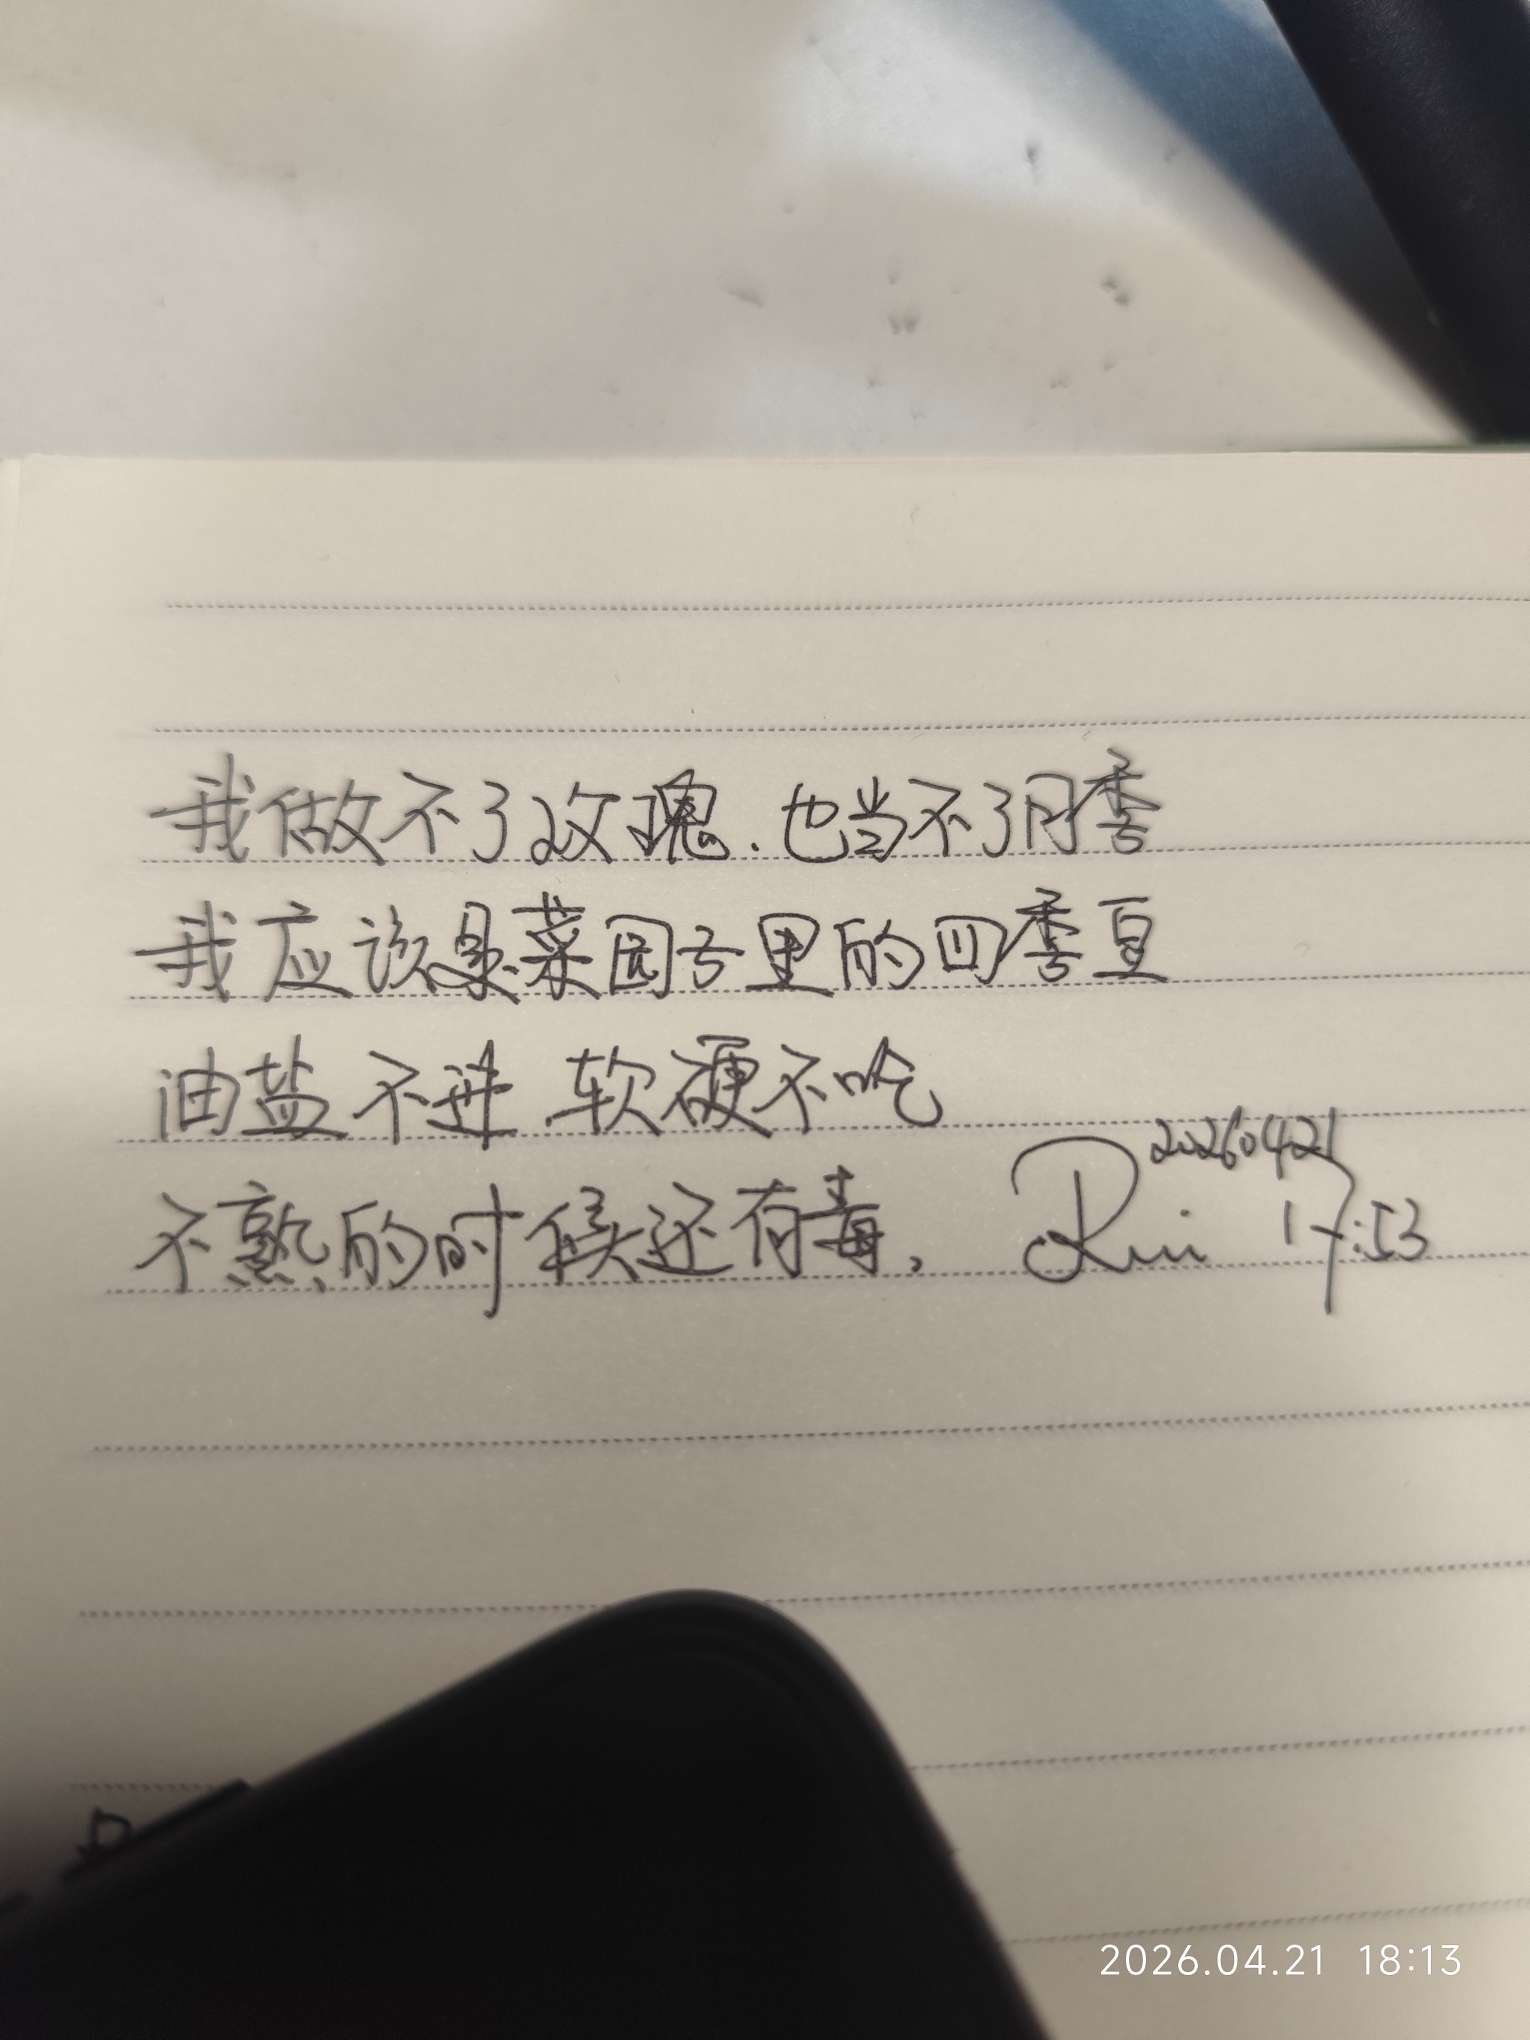 我做不了玫瑰.也当不了月季
我应该是菜园子里的四季豆
油盐不进.软硬不吃
不熟的时候还有毒,
20260421
Rui 17:53
2026.04.21 18:13